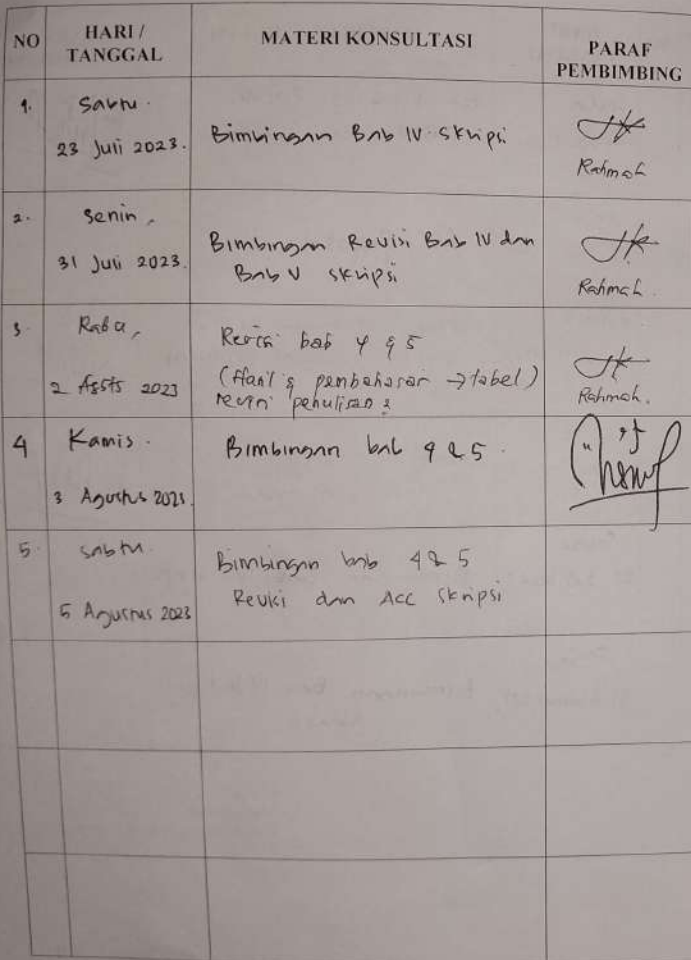 NO
HARI /
TANGGAL
MATERI KONSULTASI
PARAF
PEMBIMBING
1.
Sabtu.
23 Juli 2023.
Bimbingan Bab IV Skripsi
Rahmah
2.
Senin,
31 Juli 2023.
Bimbingan Revisi Bab IV dan
Bab V skripsi
Rahmah.
3
Rabu,
2 Agsts 2023
Revisi bab 4 & 5
(Hasil & pembahasan → tabel)
revisi penulisan
Rahmah.
4
Kamis.
3 Agustus 2023.
Bimbingan bab 4 & 5.
5.
Sabtu.
5 Agustus 2023
Bimbingan bab 4 & 5
Revisi dan Acc Skripsi